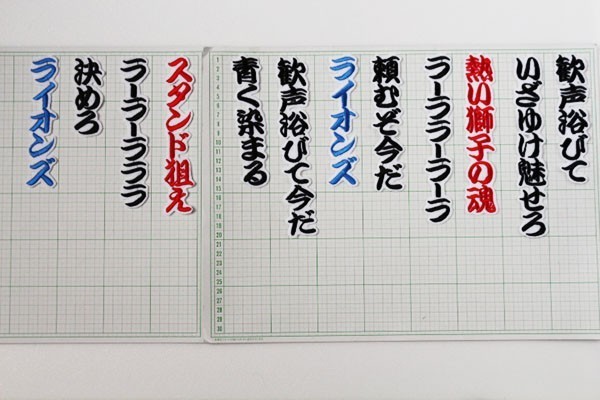 歓声浴びて
いざゆけ魅せろ
熱い獅子の魂
ラーララーラーラ
頼むぞ今だ
ライオンズ
歓声浴びて今だ
青く染まる
スタンド狙え
ラーラーラララ
決めろ
ライオンズ